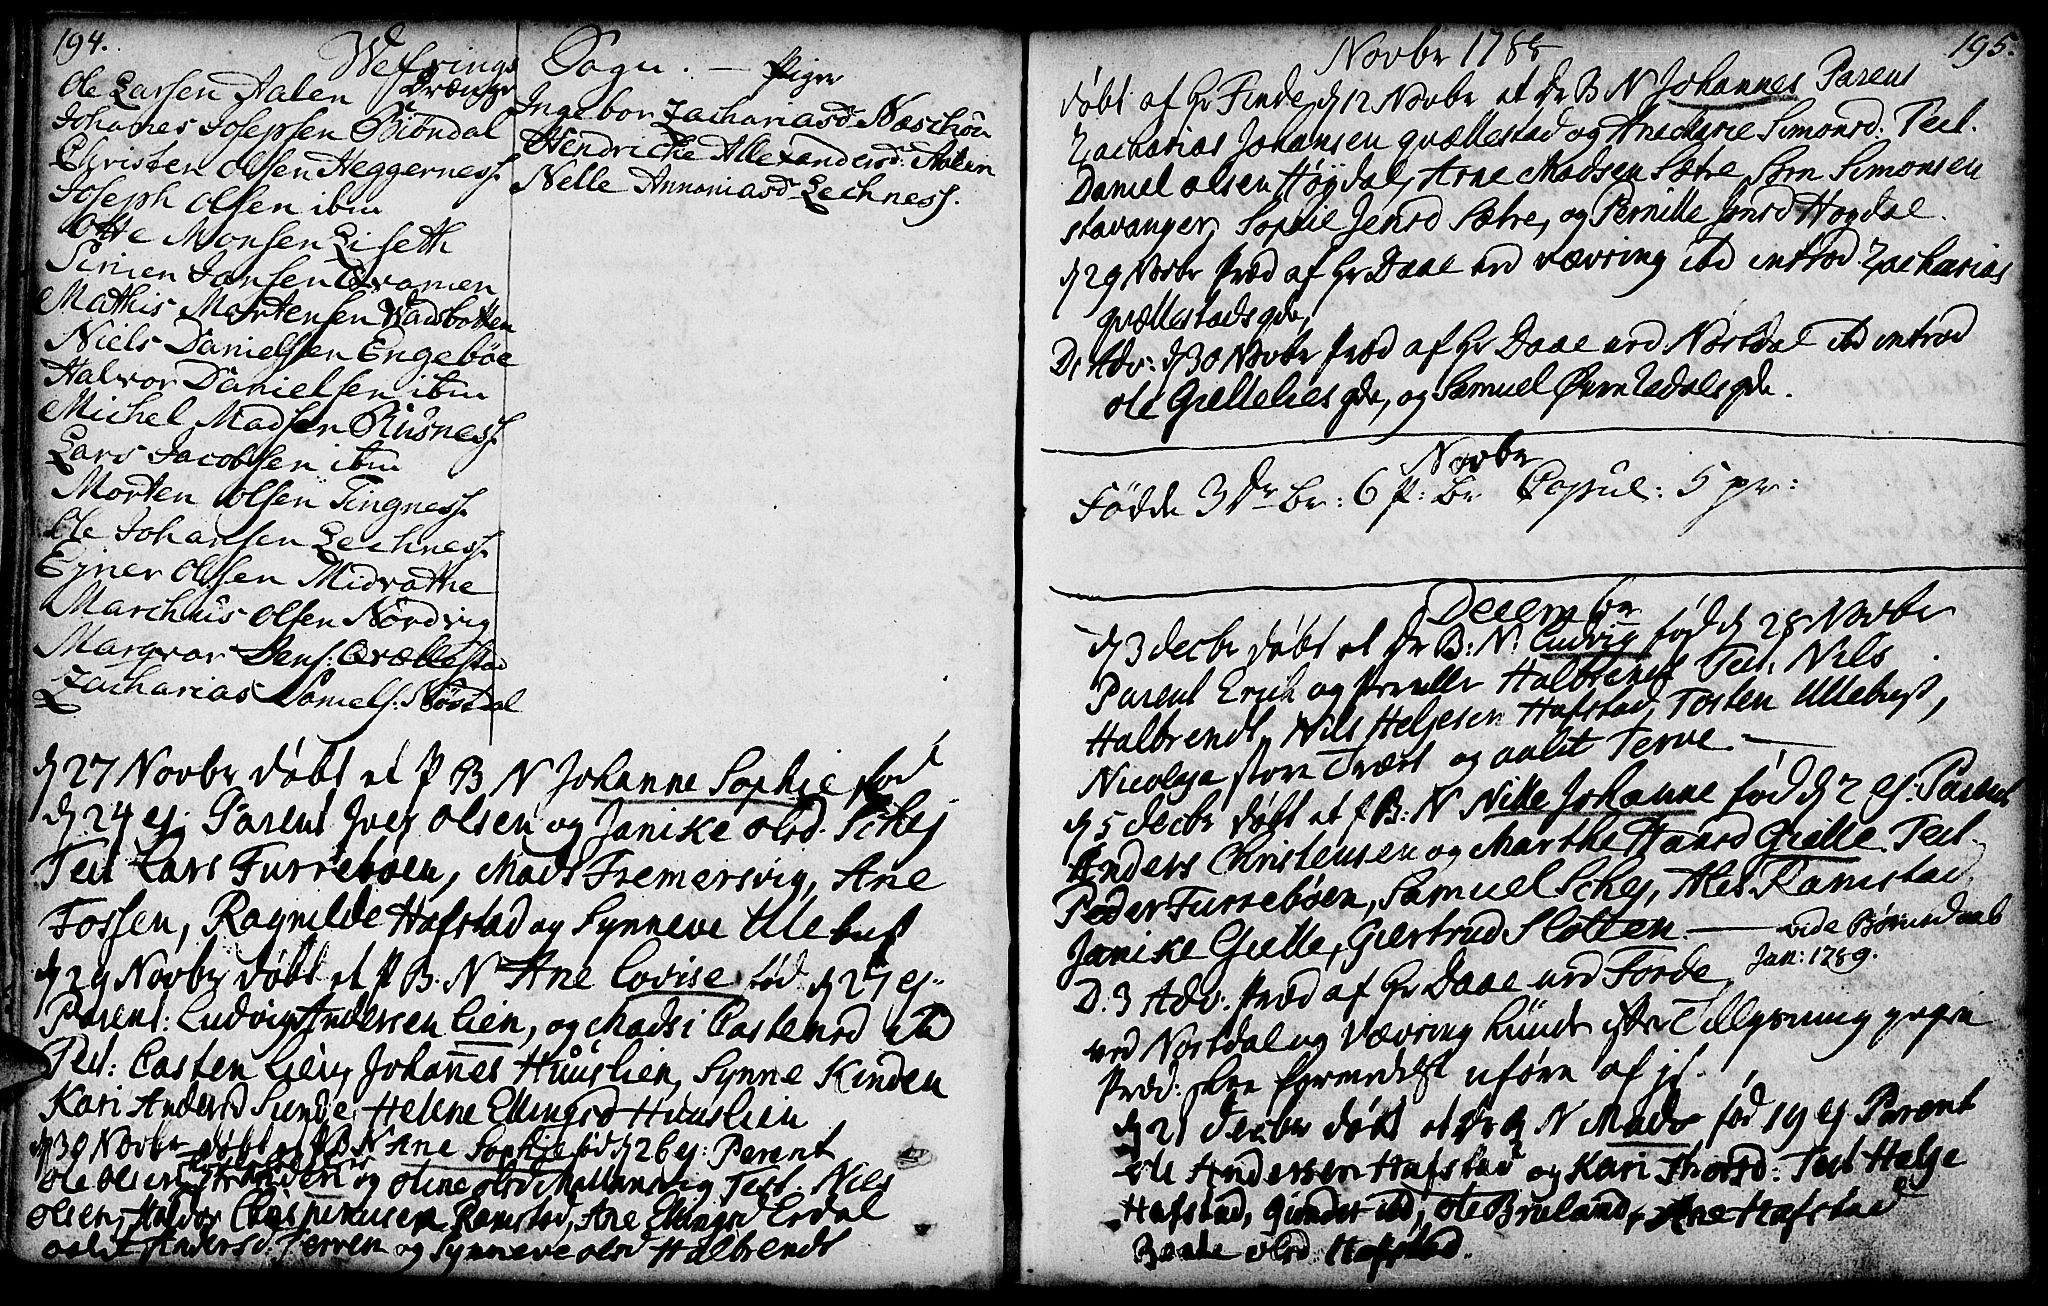 194.
Wefrings Sogn. —
Drænge
Ole Larsen Aalen
Johanes Josephsen Biöndal
Christen Olsen Heggerness.
Joseph Olsen ibm
Otte Monsen Liseth
Simen Jansen Qvamen
Mathis Mortensen Vadsbotten
Niels Danielsen Engebøe
Halvor Danielsen ibm
Michel Madsen Riisness.
Lars Jacobsen ibm
Morten Olsen Tingness.
Ole Johansen Lechness.
Ejner Olsen Midvothe
Marchus Olsen Nordvig
Margvar Dens: Qvællestad
Zacharias Daniels: Nöstdal
Piger
Ingebor Zachariasd Næschou
Hendriche Allexandersd: Aalen
Nelle Annaniasd Lechness.
d 27 Novbr döbt et P B N Johanne Sophie fød
d 24 ej. Parent Iver Olsen og Janike Olsd. Schej
Test Lars Furreboen, Mads Fremersvig, Ane
Fossen, Ragnilde Hafstad og Synneve Ullebust
d 29 Novbr döbt et P B: N Ane Lovise fød d 27 ej.
Parent: Ludvig Andersen Lien, og Madsi Castensd ibd
Test: Casten Lien, Johannes Huuslien, Synne Kinden
Kari Andersd Sunde, Helene Ellingsd Huuslien
d 30 Novbr döbt et P B N Ane Sophie fød d 26 ej: Parent
Ole Olsen og Oline Olsd Test. Nils
Olsen, Haldor Ramstad, Ane Ellingsd Erdal
Andersd: Terven og Synneve Olsd Halbrendt
195.
Novbr 1788
döbt af Hr Finde, d 12 Novbr et Dr B N Johannes Parent
Zacharias Johansen Qvællestad og Ane Marie Simonsd: Test.
Daniel Olsen Høydal, Arne Madsen Sætre, Sørn Simonsen
Stavanger, Sophie Jensd Sætre, og Pernille Jonsd Høydal.
d 29 Novbr Præd af Hr Daae ved Vævring ibd introd Zacharias
Qvællestads qde,
D: 1 Adv: d 30 Novbr Præd af Hr Daae ved Nøstdal ibd introd
Ole Giellelies qde, og Samuel Øvrenedals qde.
Novbr
Födde 3 Dr Br: 6 P: Br Copul: 5 pr:
December
d 3 Decbr döbt et Dr B: N: Ludvig fød d 28 Novbr
Parent Erich og Pernille Halbrendt Test. Nils
Halbrendt, Nils Helgesen Hafstad, Tosten Ullebust,
Nicolga store Tvært og aalit Terve. —
d 5 Decbr döbt et P B: N Nille Johanne fød d 2 ej: Parent
Anders Christensen og Marthe Hansd Gielle. Test.
Peder Furrebøen, Samuel Schej, Ales Ramstad,
Janike Gielle, Giertrud Slotten. — vide
Jan: 1789.
D. 3 Adv: Præd af Hr Daae ved Förde,
ved Nøstdal og Vævring kunde efter Tillysning ingen
Præd: skee formedelst uföre af js.
d 21 Decbr döbt et Dr B N Mads fød 19 ej Parent
Ole Andersen Hafstad og Kari Thorsd: Test Helge
Hafstad, ibd, Ole Bruland, Ane Hafstad
Olsd Hafstad.